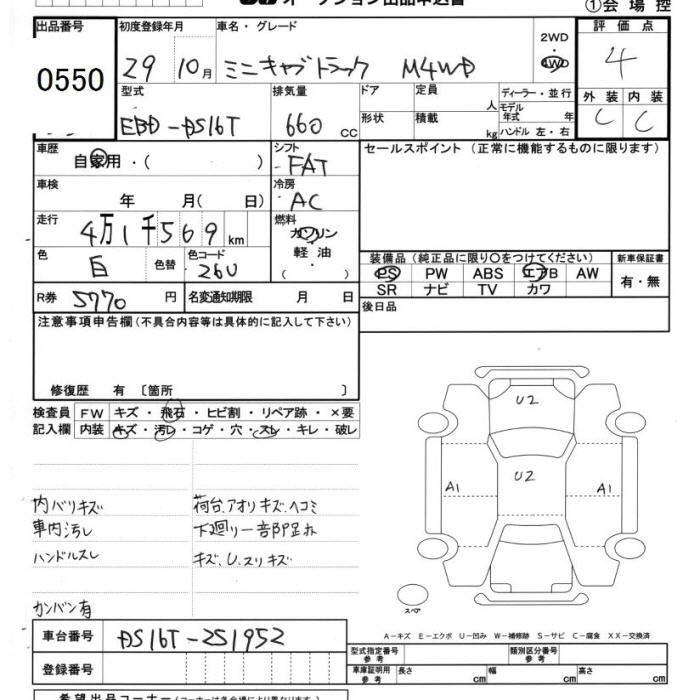 オークション出品申込書
①会場控
出品番号
0550
初度登録年月
29 10月
車名・グレード
ミニキャブトラック M4WD
2WD
・
4WD
評価点
4
外装 内装
C C
型式
EBD-DS16T
排気量
660 cc
ドア
定員
人
形状
積載
kg
ディーラー・並行
モデル年式 年
ハンドル 左・右
車歴
自家用・( )
シフト
FAT
車検
年 月(日)
冷房
AC
走行
4万1千569km
燃料
ガソリン
軽油
( )
色
白
色替
色コード
26U
R券 5770 円
名変通知期限 月 日
セールスポイント (正常に機能するものに限ります)
装備品(純正品に限り○をつけてください)
新車保証書
PS PW ABS エアB AW
SR ナビ TV カワ
有・無
後日品
注意事項申告欄(不具合内容等は具体的に記入して下さい)
修復歴 有 〔箇所 〕
検査員 FW キズ・飛石・ヒビ割・リペア跡・×要
記入欄 内装 キズ・汚レ・コゲ・穴・スレ・キレ・破レ
内バリキズ
車内汚レ
ハンドルスレ
カンバン有
荷台、アオリキズ、ヘコミ
下廻り一部
キズ、U、スリキズ
U2
U2
A1
A1
スペア
A-キズ E-エクボ U-凹み W-補修跡 S-サビ C-腐食 XX-交換済
車台番号 DS16T-251952
登録番号
型式指定番号 参考
類別区分番号 参考
車庫証明用 参考
長さ cm
幅 cm
高さ cm
希望出品コーナー(コーナーは各会場により異なります)